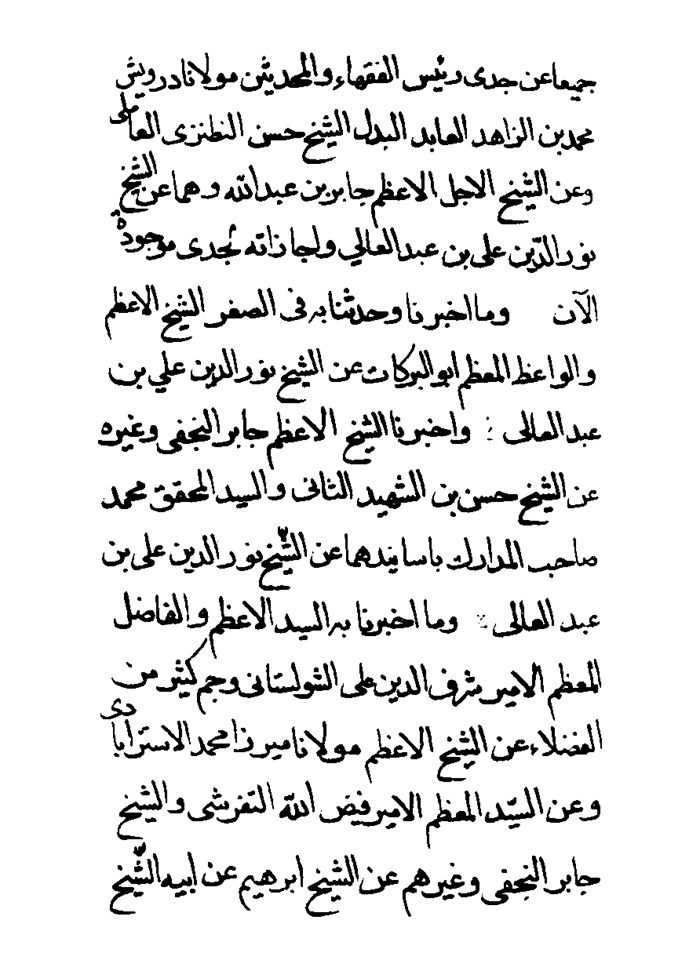 جميعا عن جدى رئيس الفقهاء والمحدثين مولانا درويش
محمد بن الزاهد العابد البدل الشيخ حسن النطنزى العاملى
وعن الشيخ الاجل الاعظم جابر بن عبد الله وهما عن الشيخ
نور الدّين على بن عبد العالي واجازاته لجدى موجودة
الآن وما اخبرنا وحدثنا به فى الصغر الشيخ الاعظم
والواعظ المعظم ابو البركات عن الشيخ نور الدين علي بن
عبد العالى واخبرنا الشيخ الاعظم جابر النجفى وغيره
عن الشيخ حسن بن الشهيد الثانى والسيد المحقق محمد
صاحب المدارك باسانيدهما عن الشّيخ نور الدين على بن
عبد العالى وما اخبرنا به السيد الاعظم والفاضل
المعظم الامير شرف الدين على الشولستانى وجم كثير من
الفضلاء عن الشيخ الاعظم مولانا ميرزا محمد الاسترابادى
وعن السيّد المعظم الامير فيض الله التفرشى والشيخ
جابر النجفى وغيرهم عن الشيخ ابرهيم عن ابيه الشّيخ